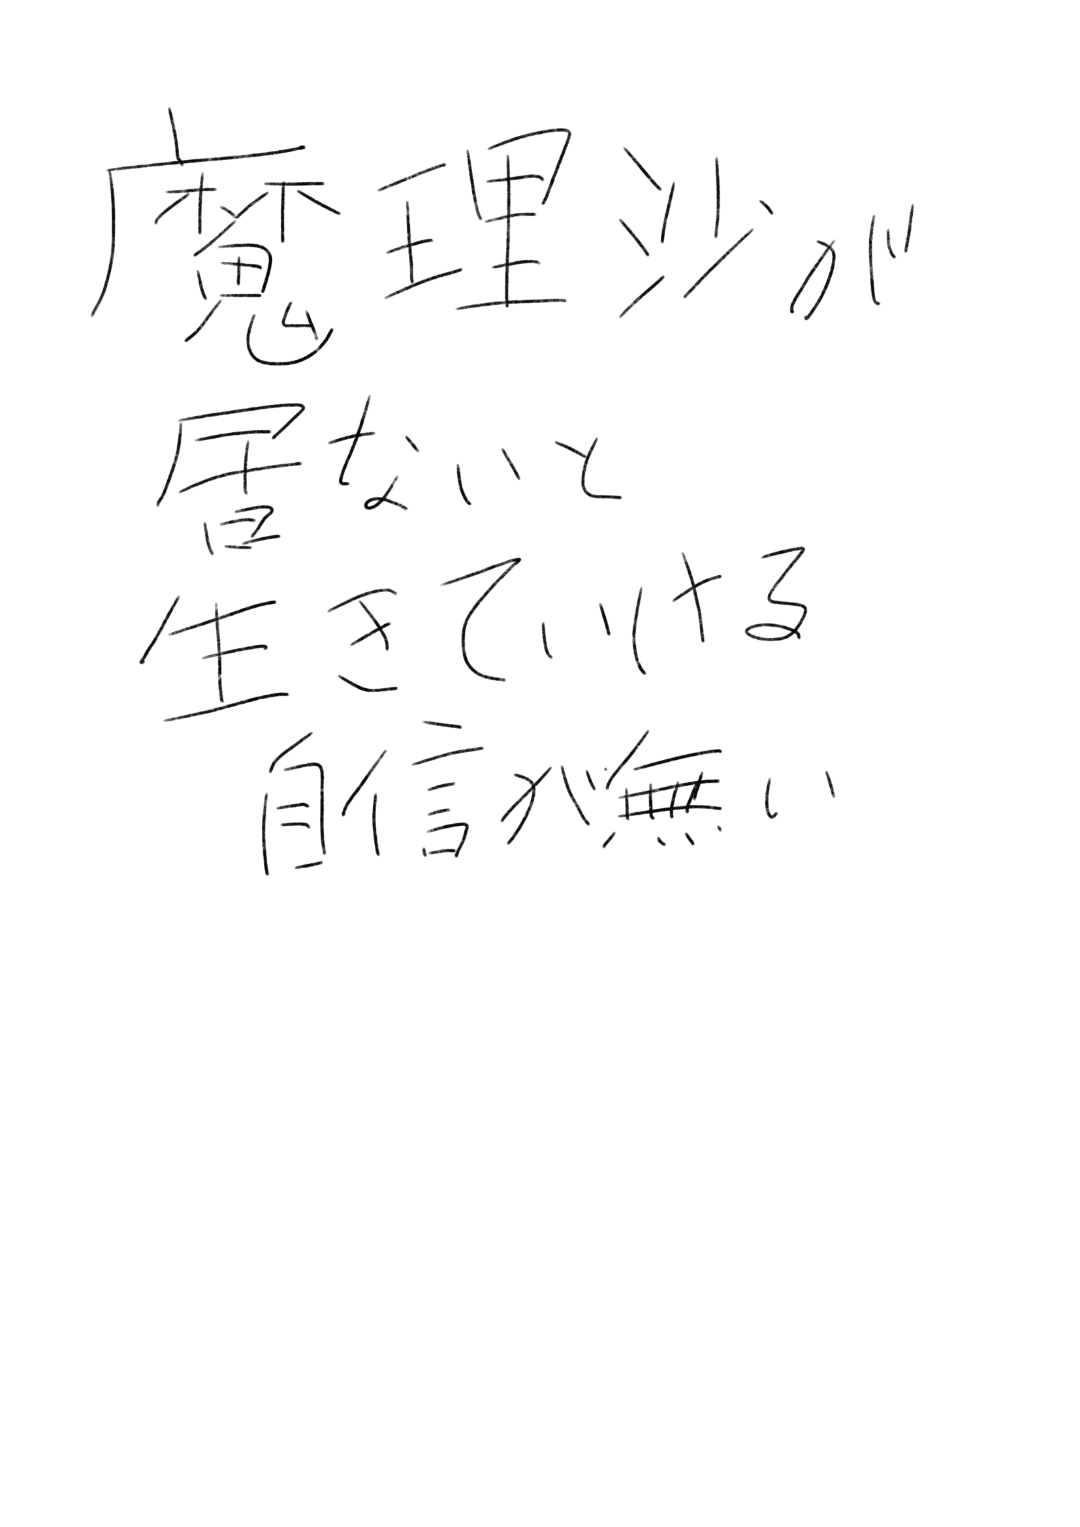 魔理沙が
居ないと
生きていける
自信が無い